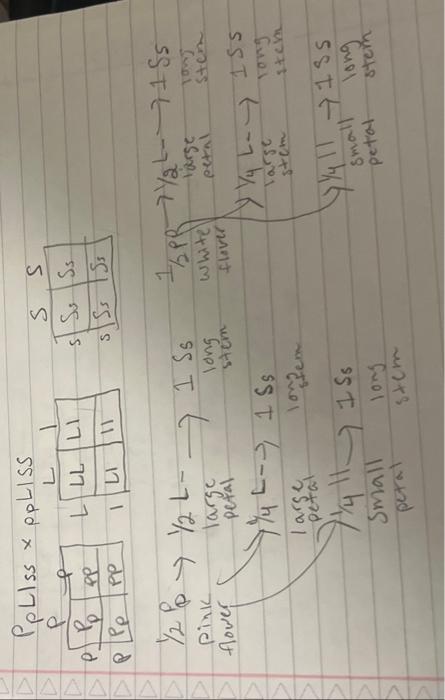 PpLlss x ppLlSS
P p L l S S
p Pp pp L LL Ll s Ss Ss
p Pp pp l Ll ll s Ss Ss
1/2 Pp → 1/2 L- → 1 Ss 1/2 pp → 1/2 L- → 1 Ss
pink large long white large long
flower petal stem flower petal stem
1/4 L- → 1 Ss 1/4 L- → 1 Ss
large long large long
petal stem stem stem
1/4 ll → 1 Ss 1/4 ll → 1 Ss
small long small long
petal stem petal stem